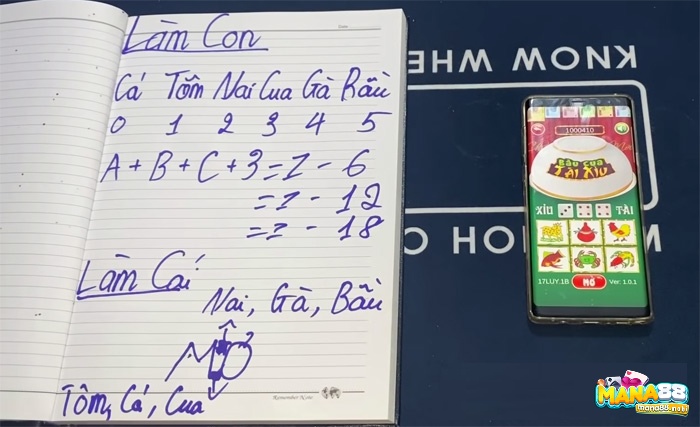 Làm Con
Cá Tôm Nai Cua Gà Bầu
0 1 2 3 4 5
A + B + C + 3 = Z - 6
= Z - 12
= Z - 18
Làm Cái
Nai, Gà, Bầu
MỞ
Tôm, Cá, Cua
Remember Note
KNOW WHE
1000410
BẦU CUA
TÀI XỈU
XỈU
TÀI
17LUY.1B
MỞ
Ver: 1.0.1
MANA88
mana88.mobi